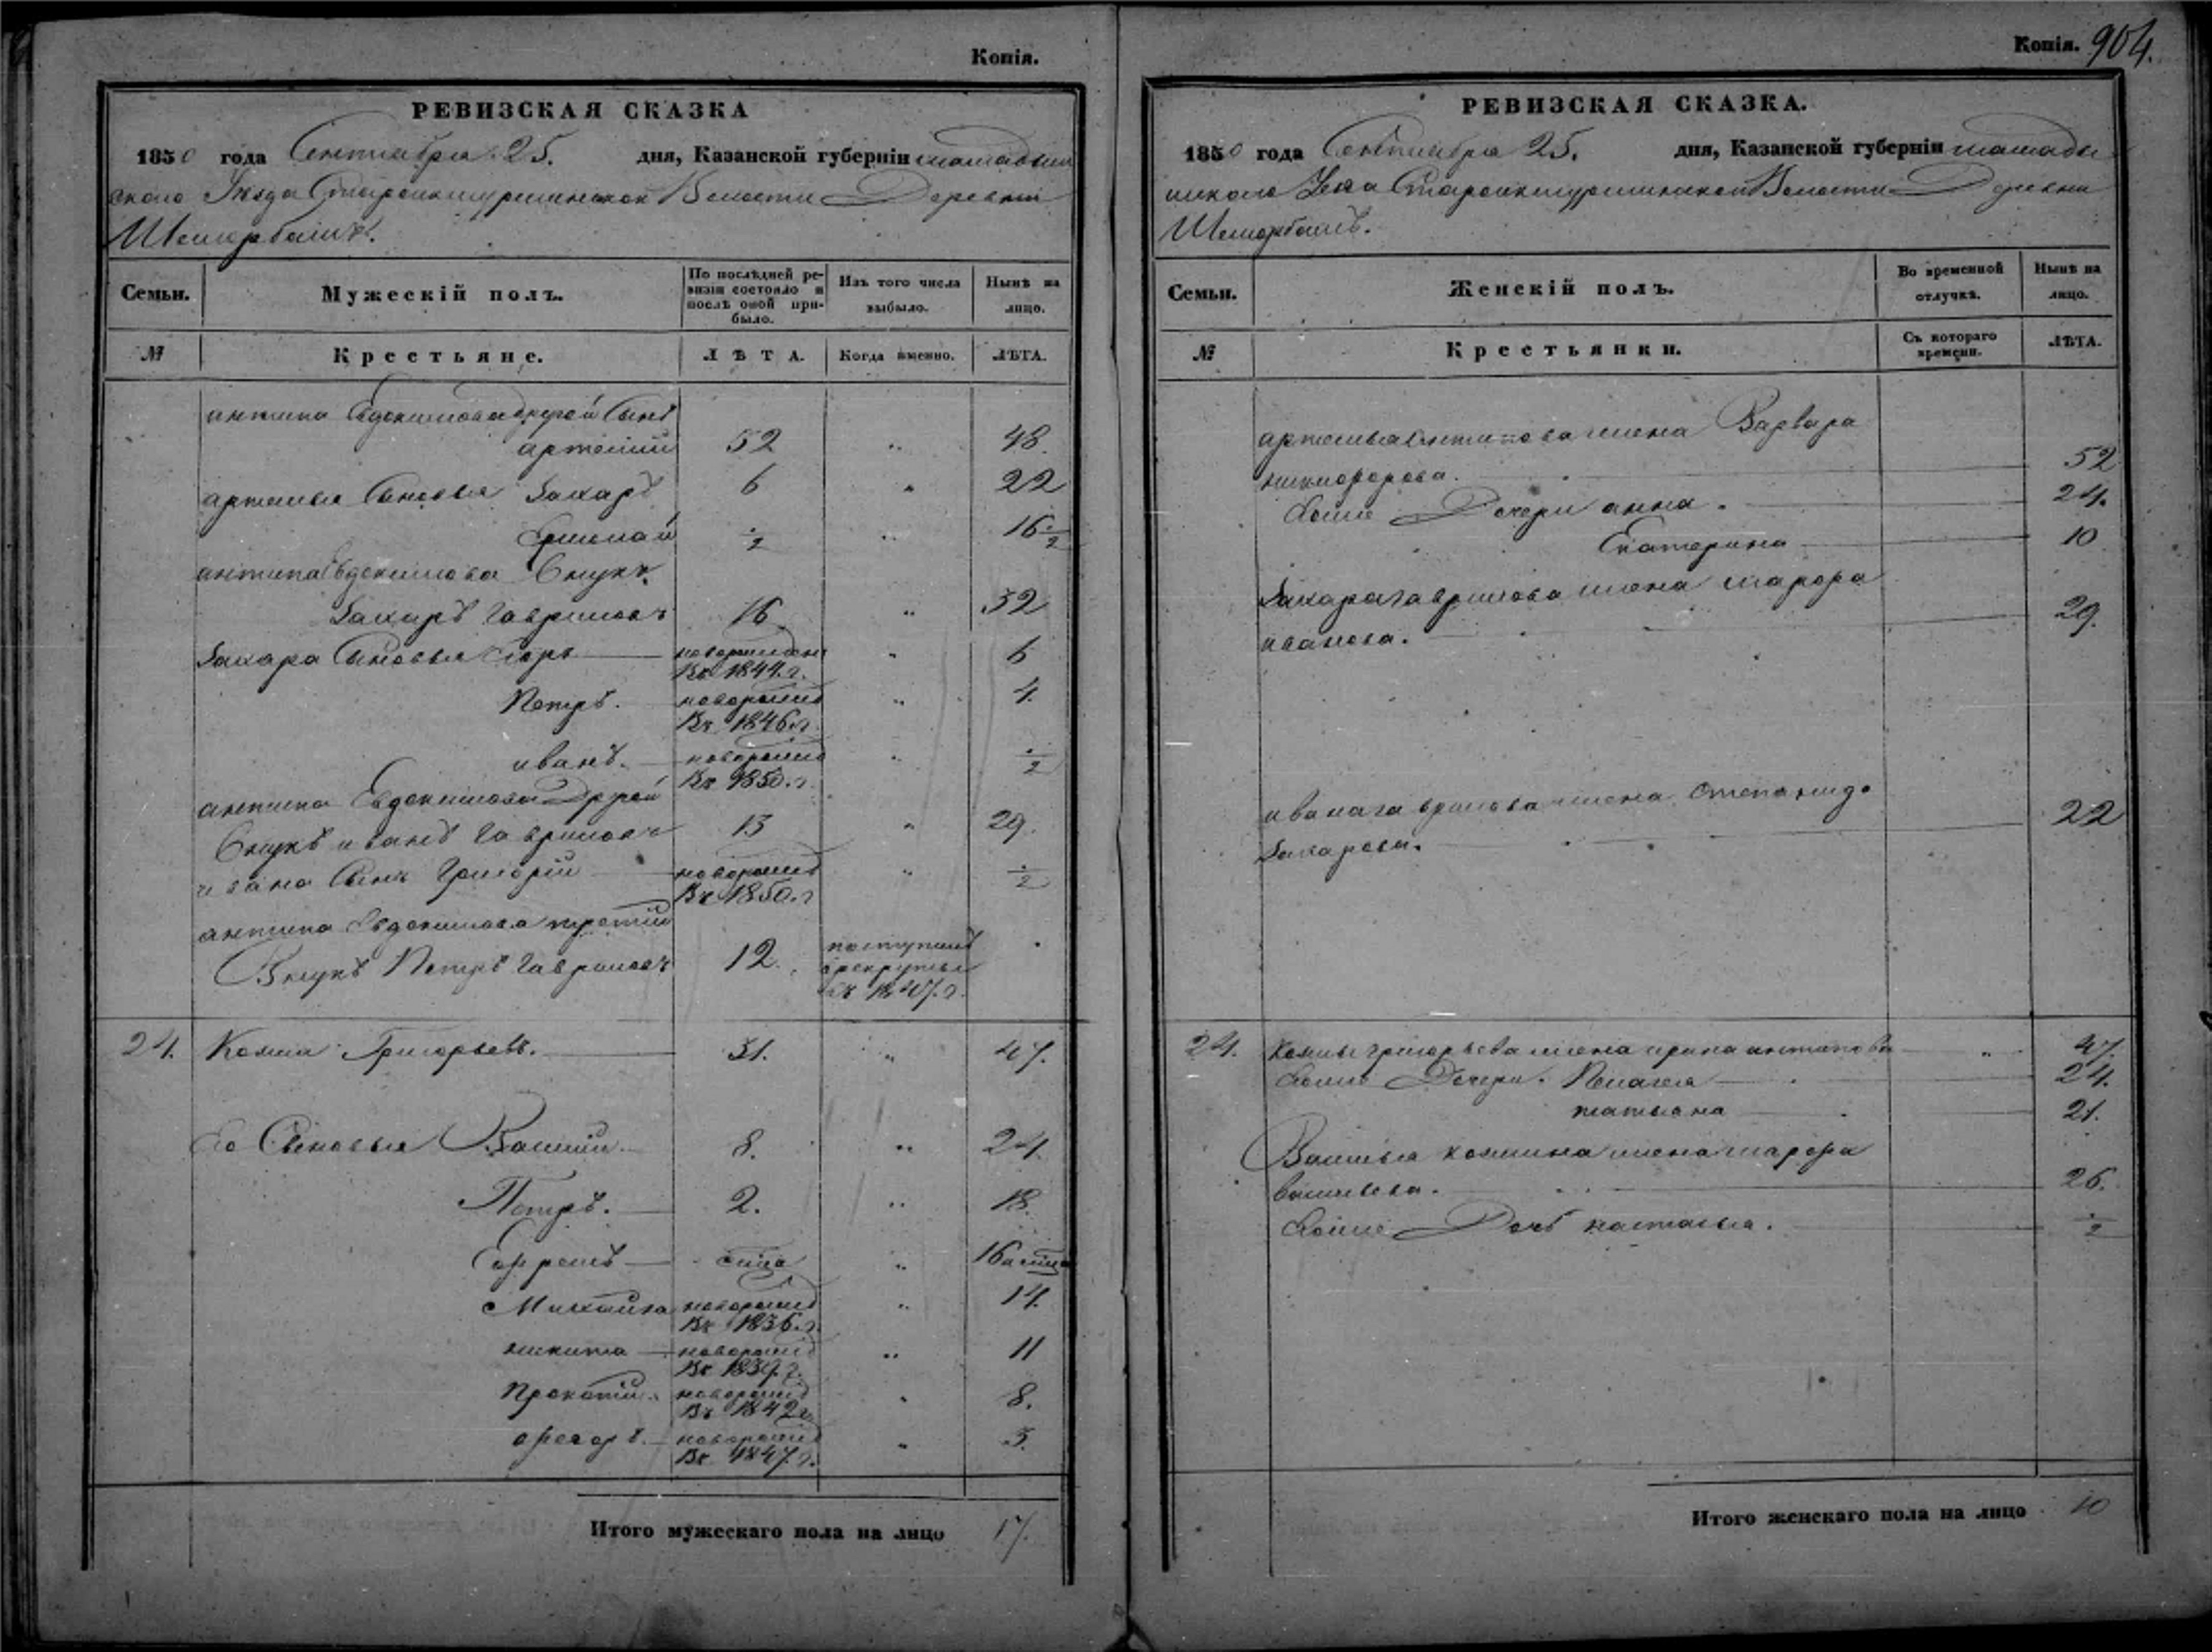 Копія.
РЕВИЗСКАЯ СКАЗКА
1850 года Сентября 25. дня, Казанской губерніи мамадыш
скаго Уѣзда Старокишурминской Волости Деревни
Семьи.
Мужескій полъ.
По послѣдней ре-
визіи состояло и
послѣ оной при-
было.
Изъ того числа
выбыло.
Нынѣ на
лицо.
№
Крестьяне.
ЛѢТА.
Когда именно.
ЛѢТА.
антипа Евдокимова другой Сынъ
артемій 52 " 48.
артемья Сыновья Захаръ 6 " 22
Ермолай ½ " 16½
антипа Евдокимова Внукъ
Захаръ Гавриловъ 16 " 32
Захара Сыновья новорожден " 6
Въ 1844.г.
Петръ. новорожд " 4.
Въ 1846.г.
иванъ. новорожд " ½
Въ 1850.г.
антипа Евдокимова Другой
Внукъ иванъ Гавриловъ 13 " 29.
ивана Сынъ Григорій новорожд " ½
Въ 1850.г
антипа Евдокимова третій
Внукъ Петръ Гавриловъ 12. поступилъ
в рекруты
въ 1847.г.
24. Козма Григорьевъ. 31. " 47.
Ево Сыновья Василій 8. " 24.
Петръ. 2. " 18.
Ефремъ "
Михайла новорожд " 14.
Въ 1836.г.
никита новорожд " 11
Въ 1839.г.
Прокопій новорожд " 8.
Въ 1842г
новорожд " 3.
Въ 1847.г.
Итого мужескаго пола на лицо 17.
Копія. 904.
РЕВИЗСКАЯ СКАЗКА.
1850 года Сентября 25. дня, Казанской губерніи мамады
шскаго Старокишурминской Волости Деревни
Семьи.
Женскій полъ.
Во временной
отлучкѣ.
Нынѣ на
лицо.
№
Крестьянки.
Съ котораго
времени.
ЛѢТА.
артемья антипова жена Варвара
никифорова. 52
Дочери анна. 24.
Екатерина 10
Захара гаврилова жена марфа
иванова. 29.
ивана гаврилова жена степанида
Захарова. 22
24. Козмы григорьева жена ирина антипова " 47.
Дочери. Пелагея 24.
татьяна 21.
Василья козмина жена марфа
васильева. 26.
Дочь наталья. ½
Итого женскаго пола на лицо 10